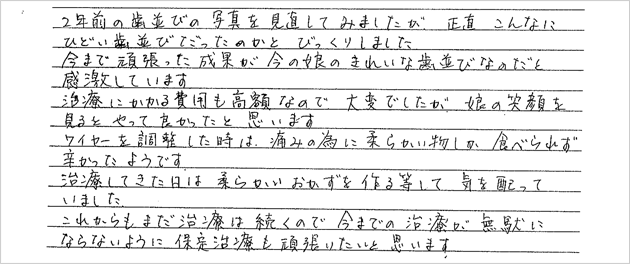 2年前の歯並びの写真を見直してみましたが 正直 こんなに
ひどい歯並びだったのかと びっくりしました
今まで頑張った成果が 今の娘のきれいな歯並びなのだと
感激しています
治療にかかる費用も高額なので 大変でしたが 娘の笑顔を
見るとやって良かったと思います
ワイヤーを調整した時は 痛みの為に柔らかい物しか食べられず
辛かったようです
治療してきた日は柔らかいおかずを作る等して 気を配って
いました
これからもまだ治療は続くので 今までの治療が無駄に
ならないように 保定治療も頑張りたいと思います